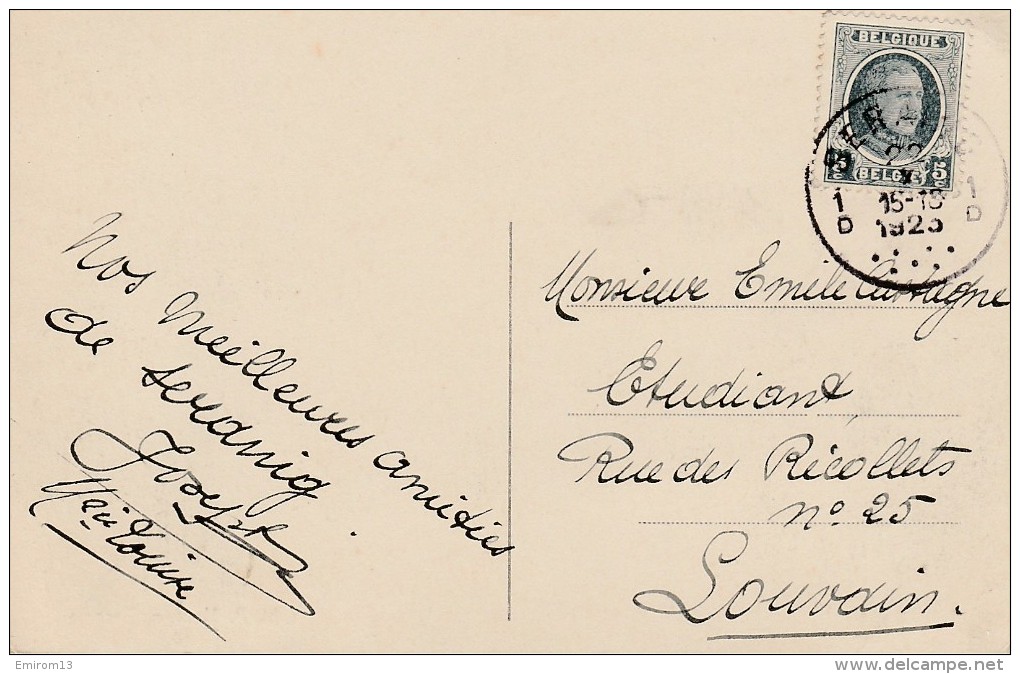 BELGIQUE
5 5
BELGIË
SERAI
22
X
1 15-18 1
D 1923 D
Nos meilleures amitiés
de seraing
Joseph
Monsieur Emile
Etudiant
Rue des Récollets
n° 25
Louvain.
Emirom13
www.delcampe.net